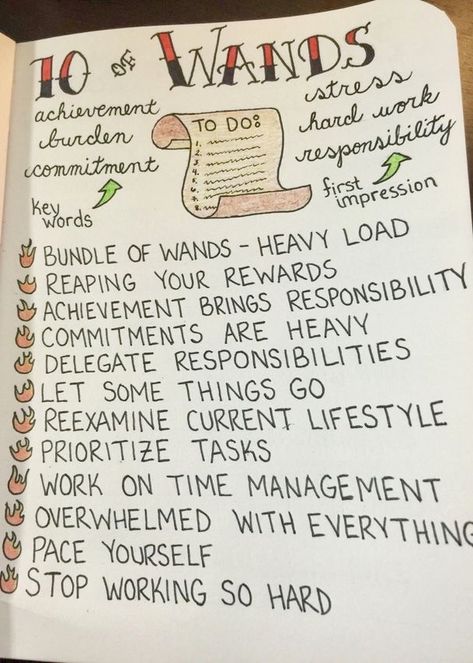 10 of WANDS
achievement
burden
commitment
key
words
TO DO:
1.
2.
3.
4.
5.
6.
7.
8.
stress
hard work
responsibility
first
impression
BUNDLE OF WANDS - HEAVY LOAD
REAPING YOUR REWARDS
ACHIEVEMENT BRINGS RESPONSIBILITY
COMMITMENTS ARE HEAVY
DELEGATE RESPONSIBILITIES
LET SOME THINGS GO
REEXAMINE CURRENT LIFESTYLE
PRIORITIZE TASKS
WORK ON TIME MANAGEMENT
OVERWHELMED WITH EVERYTHING
PACE YOURSELF
STOP WORKING SO HARD